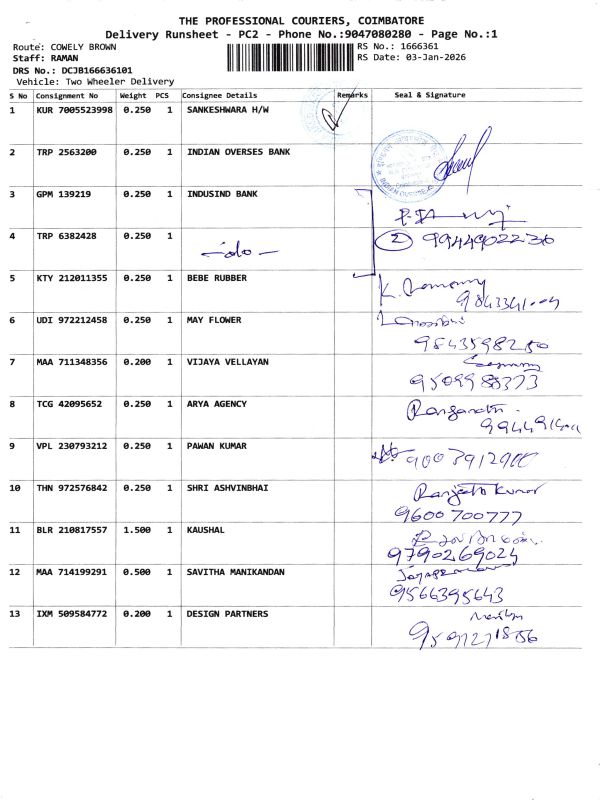 THE PROFESSIONAL COURIERS, COIMBATORE
Delivery Runsheet - PC2 - Phone No.:9047080280 - Page No.:1
Route: COWELY BROWN RS No.: 1666361
Staff: RAMAN RS Date: 03-Jan-2026
DRS No.: DCJB166636101
Vehicle: Two Wheeler Delivery
S No Consignment No Weight PCS Consignee Details Remarks Seal & Signature
1 KUR 7005523998 0.250 1 SANKESHWARA H/W
2 TRP 2563200 0.250 1 INDIAN OVERSES BANK
3 GPM 139219 0.250 1 INDUSIND BANK
4 TRP 6382428 0.250 1 -do- 2 9944902236
5 KTY 212011355 0.250 1 BEBE RUBBER
6 UDI 972212458 0.250 1 MAY FLOWER 9843598250
7 MAA 711348356 0.200 1 VIJAYA VELLAYAN
8 TCG 42095652 0.250 1 ARYA AGENCY Ranganath
9 VPL 230793212 0.250 1 PAWAN KUMAR
10 THN 972576842 0.250 1 SHRI ASHVINBHAI Ranjeeth Kumar
9600700777
11 BLR 210817557 1.500 1 KAUSHAL
9790269024
12 MAA 714199291 0.500 1 SAVITHA MANIKANDAN
9566395643
13 IXM 509584772 0.200 1 DESIGN PARTNERS